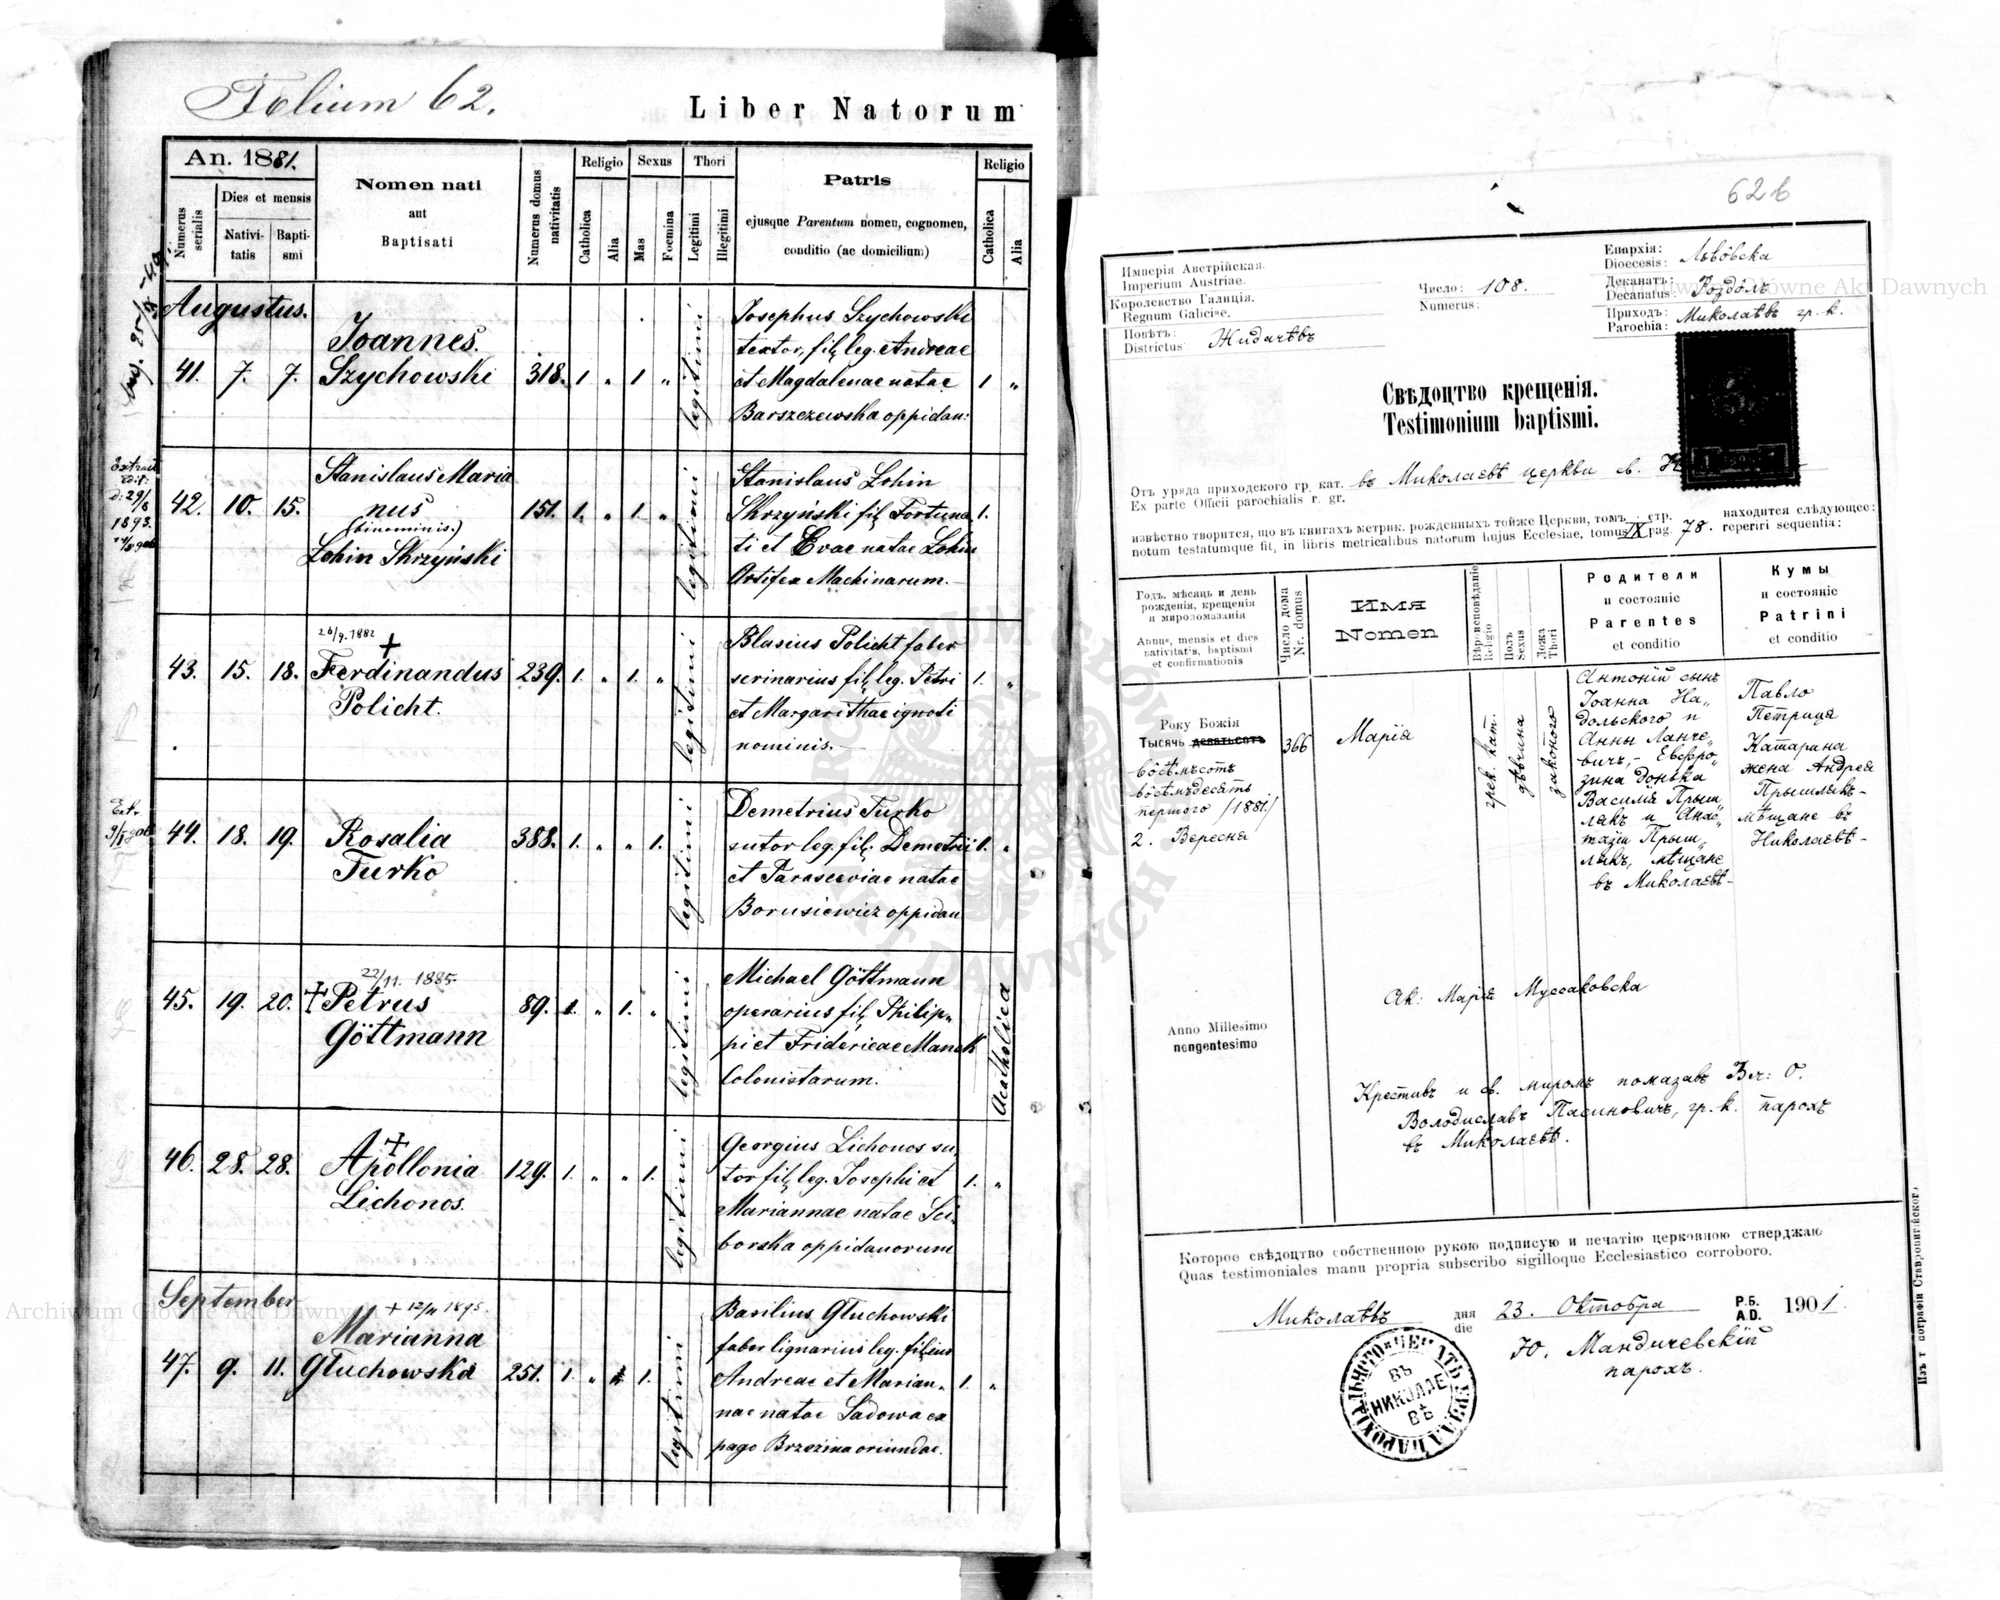 Folium 62.
Liber Natorum
An. 1881.
Numerus serialis
Dies et mensis
Nativitatis
Baptismi
Nomen nati
aut
Baptisati
Numerus domus nativitatis
Religio
Catholica
Alia
Sexus
Mas
Foemina
Thori
Legitimi
Illegitimi
Patris
ejusque Parentum nomen, cognomen,
conditio (ac domicilium)
Religio
Catholica
Alia
Augustus.
41. 7. 7. Joannes Szychowski 318. 1 „ 1 „ legitimi
Josephus Szychowski
textor, fil. leg. Andreae
et Magdalenae natae
Barszczewska oppidan:
1 „
Extract
d: 29/8
1893.
42. 10. 15. Stanislaus Maria
nus
(binominis.)
Lohin Skrzyński
151. 1. „ 1. „ legitimi
Stanislaus Lohin
Skrzyński fil. Fortuna
ti et Evae natae Lohin
Artifex Machinarum.
1.
26/9. 1882
43. 15. 18. Ferdinandus
Policht.
239. 1. „ 1. „ legitimi
Blasius Policht faber
serinarius fil. leg. Petri
et Margarithae ignoti
nominis.
1. „
44. 18. 19. Rosalia
Turko
388. 1. „ „ 1. legitimi
Demetrius Turko
sutor leg. fil. Demetrii
et Parasceviae natae
Borusiewicz oppidan
1. „
22/11. 1885.
45. 19. 20. Petrus
Göttmann
89. 1. „ 1. „ legitimi
Michael Göttmann
operarius fil. Philip„
pi et Fridericae Manek
Colonistarum.
Acatholica
46. 28. 28. Apollonia
Lichonos.
129. 1. „ „ 1. legitimi
Georgius Lichonos su„
tor fil. leg. Josephi et
Mariannae natae Sci„
borska oppidanorum
1. „
September
+ 12/11 1895.
47. 9. 11. Marianna
Głuchowska
251. 1. „ 1. legitimi
Basilius Głuchowski
faber lignarius leg. filius
Andreae et Marian„
nae natae Sadowa ex
pago Brzezina oriundae.
1. „
62 b
Имперія Австрійская.
Imperium Austriae.
Королевство Галиція.
Regnum Galiciae.
Повѣтъ:
Districtus Жидачѣвъ
Число: 108.
Numerus:
Епархія:
Dioecesis: Львôвска
Деканатъ:
Decanatus: Роздôлъ
Приходъ:
Parochia: Миколаѣвъ гр. к.
Свѣдоцтво крещенія.
Testimonium baptismi.
Отъ уряда приходского гр. кат. въ Миколаевѣ церкви св.
Ex parte Officii parochialis r. gr.
извѣстно творится, що въ книгахъ метрик. рожденныхъ тойже Церкви, томъ IX стр. 78. находится слѣдующее:
notum testatumque fit, in libris metricalibus natorum hujus Ecclesiae, tomus pag. reperiri sequentia:
Годъ, мѣсяць и день
рожденія, крещенія
и миропомазанія
Annus, mensis et dies
nativitatis, baptismi
et confirmationis
Число дома
Nr. domus
Имя
Nomen
Вѣроисповѣданіе
Religio
Полъ
Sexus
Ложа
Thori
Родители
и состояніе
Parentes
et conditio
Кумы
и состояніе
Patrini
et conditio
Року Божія
Тысячъ девятьсотъ
вôсѣмьсотъ
вôсѣмьдесятъ
першого /1881/
2. Вересня
366
Марія
грек. кат.
дѣвчина
законого
Антоній сынъ
Іоанна На„
дольского и
Анны Ланче„
вичъ, - Евфро„
зина донька
Василія Прыш„
лякъ и Анас„
тазіи Прыш„
лякъ, мѣщане
въ Миколаевѣ -
Павло
Петрица
Катарина
жена Андрея
Прышлякъ -
мѣщане въ
Миколаевѣ -
Ак: Марія Муссаковска
Anno Millesimo
nongentesimo
Крестивъ и св. миромъ помазавъ Вч: О.
Володиславъ Пасиновичъ, гр. к. парохъ
въ Миколаевѣ.
Которое свѣдоцтво собственною рукою подписую и печатію церковною стверджаю
Quas testimoniales manu propria subscribo sigilloque Ecclesiastico corroboro.
Миколаѣвъ дня 23. Октобра Р.Б. 1901.
die A.D.
Ю. Мандичевскій
парохъ.
ВЪ
НИКОЛАЕ
ВѢ
Archiwum Główne Akt Dawnych
Archiwum Główne Akt Dawnych